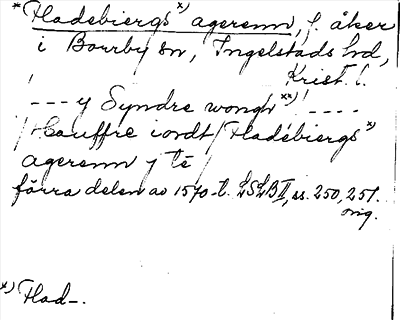 *Hladebiergs x) agerenn, f. åker
i Borrby sn, Ingelstads hd,
Krist. l.
--- y Syndre wongh xx) ----
/Hauffre iordt/ Hladebiergs x)
agerenn j té
förra delen av 1570-t. LSLB II, ss. 250, 251.
orig.
x) Hlad-.